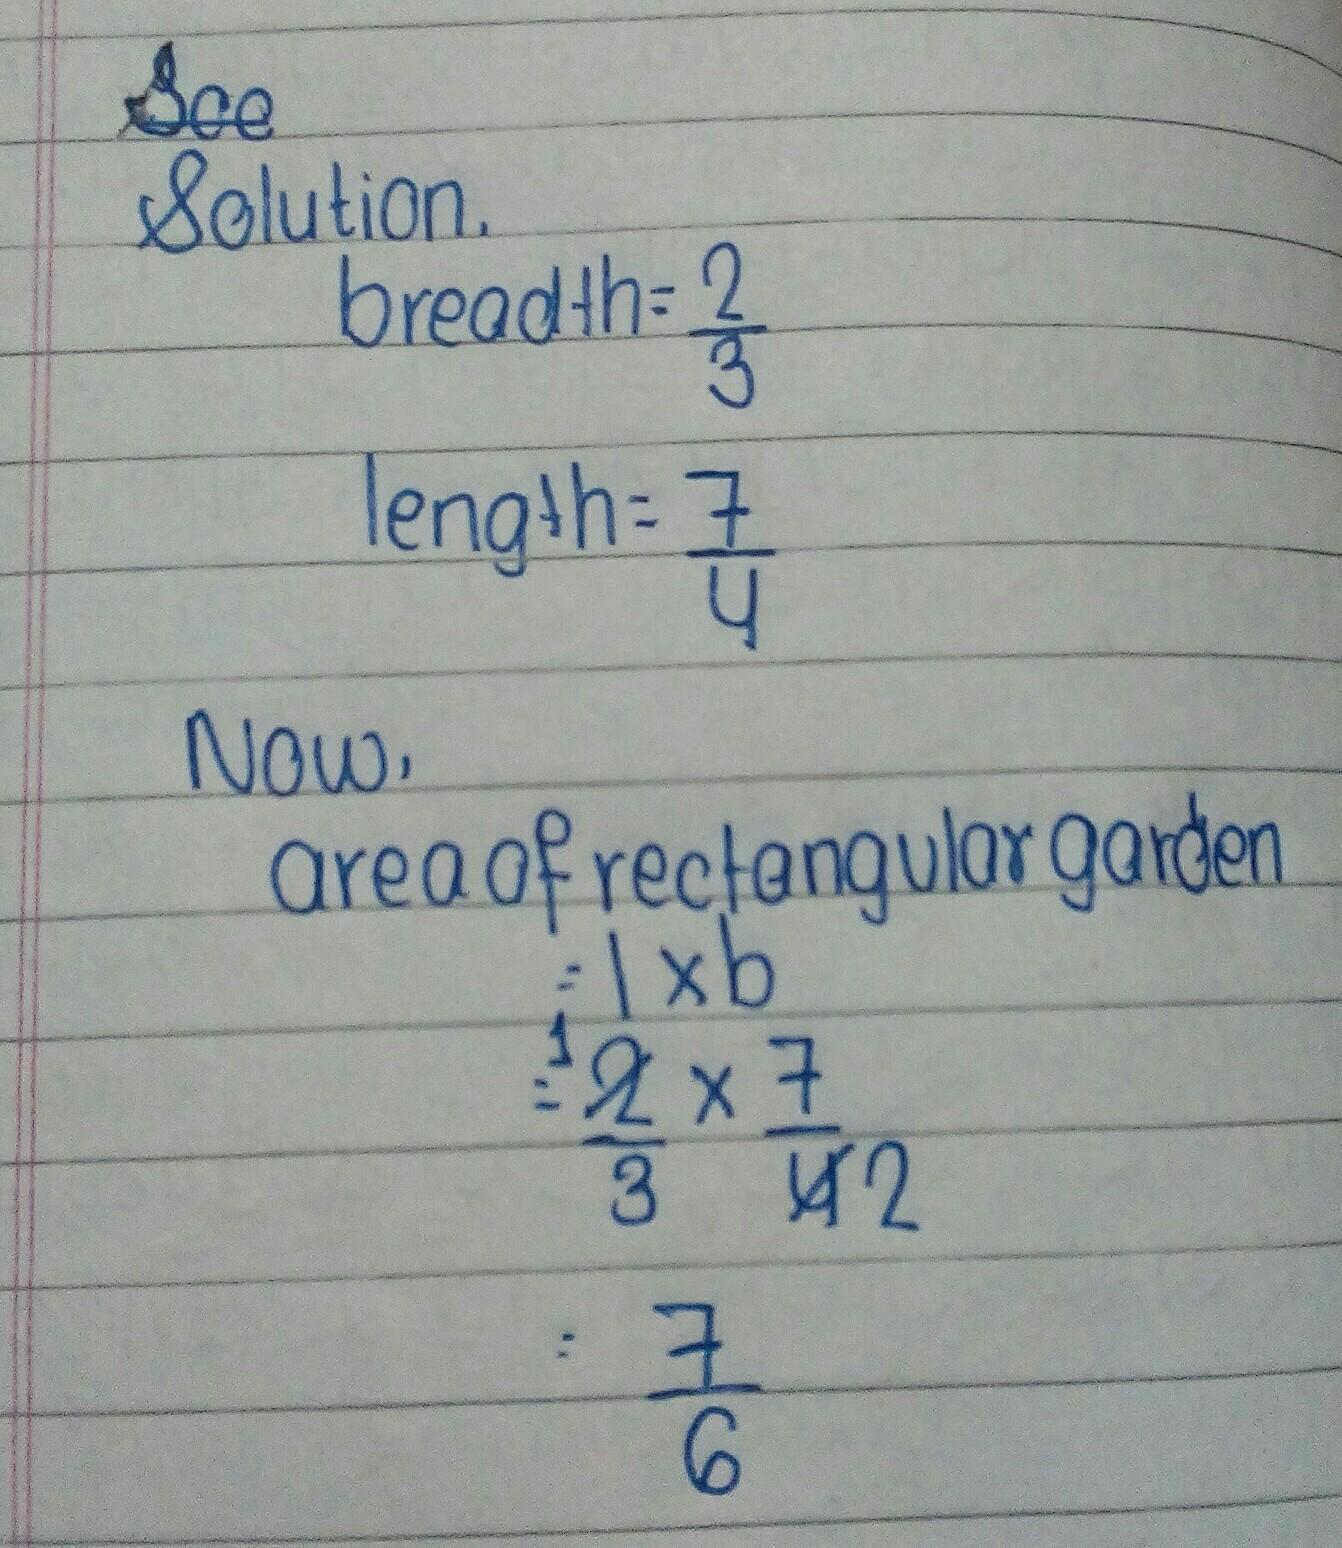 See
Solution.
breadth = 2/3
length = 7/4
Now,
area of rectangular garden
= l × b
= 1 2/3 × 7/4 2
= 7/6